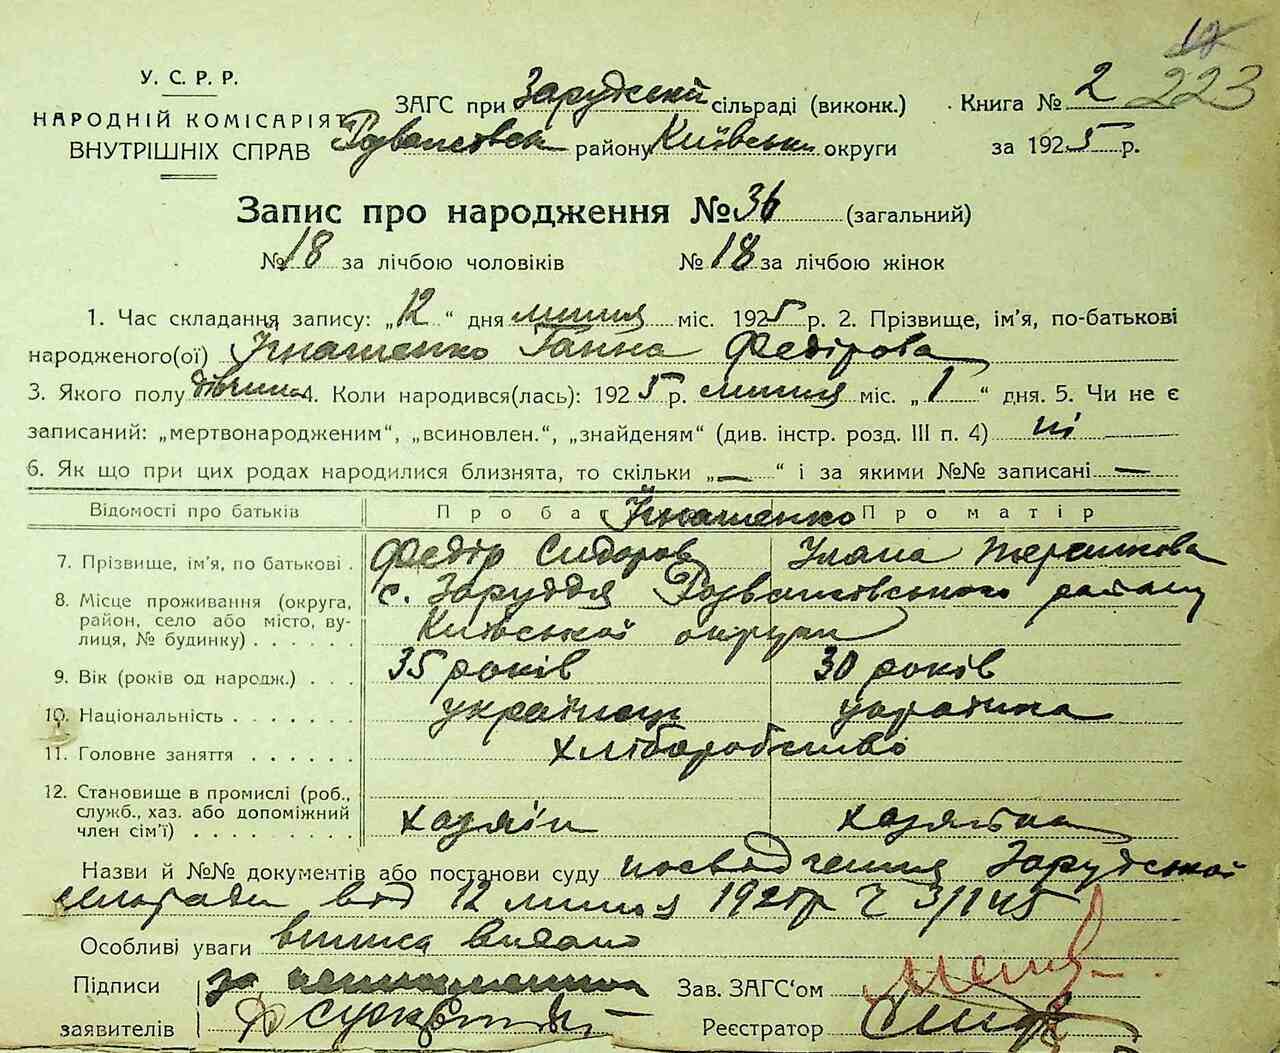 12
223
У. С. Р. Р.
НАРОДНІЙ КОМІСАРІЯТ
ВНУТРІШНІХ СПРАВ
ЗАГС при Зарудській сільраді (виконк.) Книга № 2
району Київськ округи за 1925 р.
Запис про народження № 36 (загальний)
№ 18 за лічбою чоловіків № 18 за лічбою жінок
1. Час складання запису: „12“ дня липня міс. 1925 р. 2. Прізвище, ім'я, по-батькові
народженого(ої) Ігнашенко Ганна Федірова
3. Якого полу дівчина 4. Коли народився(лась): 1925 р. липня міс. „1“ дня. 5. Чи не є
записаний: „мертвонародженим“, „всиновлен.“, „знайденям“ (див. інстр. розд. III п. 4) ні
6. Як що при цих родах народилися близнята, то скільки „—“ і за якими №№ записані —
Відомості про батьків Про бат Ігнашенко Про матір
7. Прізвище, ім'я, по батькові . Федір Сидоров Уляна
8. Місце проживання (округа, с. Заруддя району
район, село або місто, ву-
лиця, № будинку) . . . . . Київської округи
9. Вік (років од народж.) . . . 35 років 30 років
10. Національність . . . . . . . українець українка
11. Головне заняття . . . . . . хліборобство
12. Становище в промислі (роб.,
служб., хаз. або допоміжний
член сім'ї) . . . . . . . . . хазяїн хазяйка
Назви й №№ документів або постанови суду посвідчення Зарудської
сільради від 12 липня 1925 р Ч 3/1145
Особливі уваги виписа видано
Підписи за
заявителів
Зав. ЗАГС'ом
Реєстратор